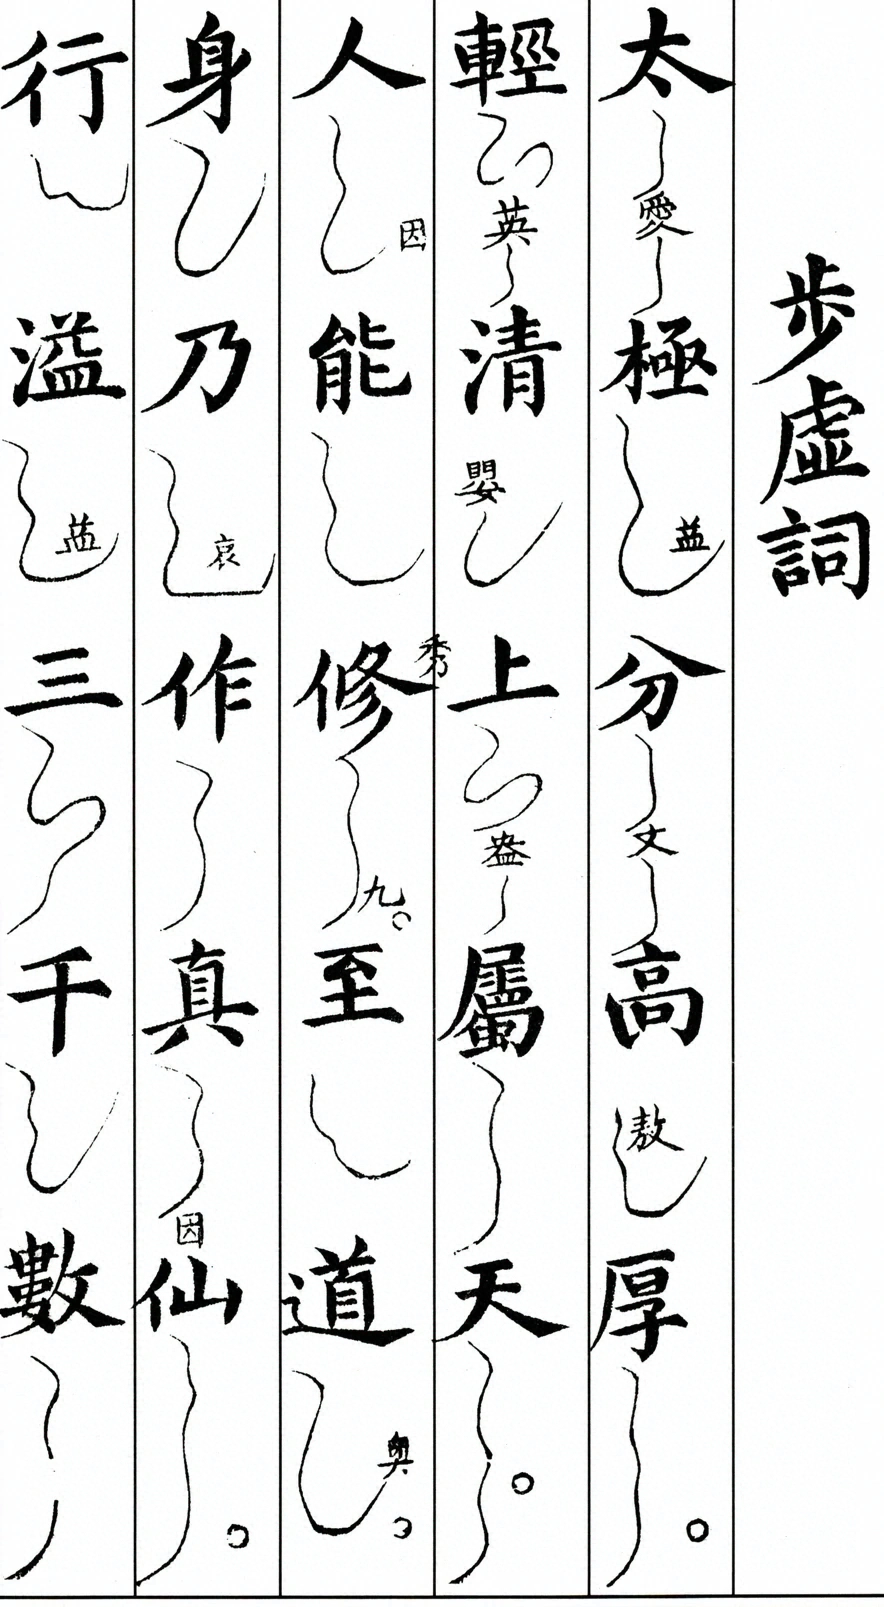 步虛詞
太愛極益分文高敖厚
輕英清嬰上盎屬天
人因能修秀九至道奧
身乃哀作真因仙
行溢益三千數